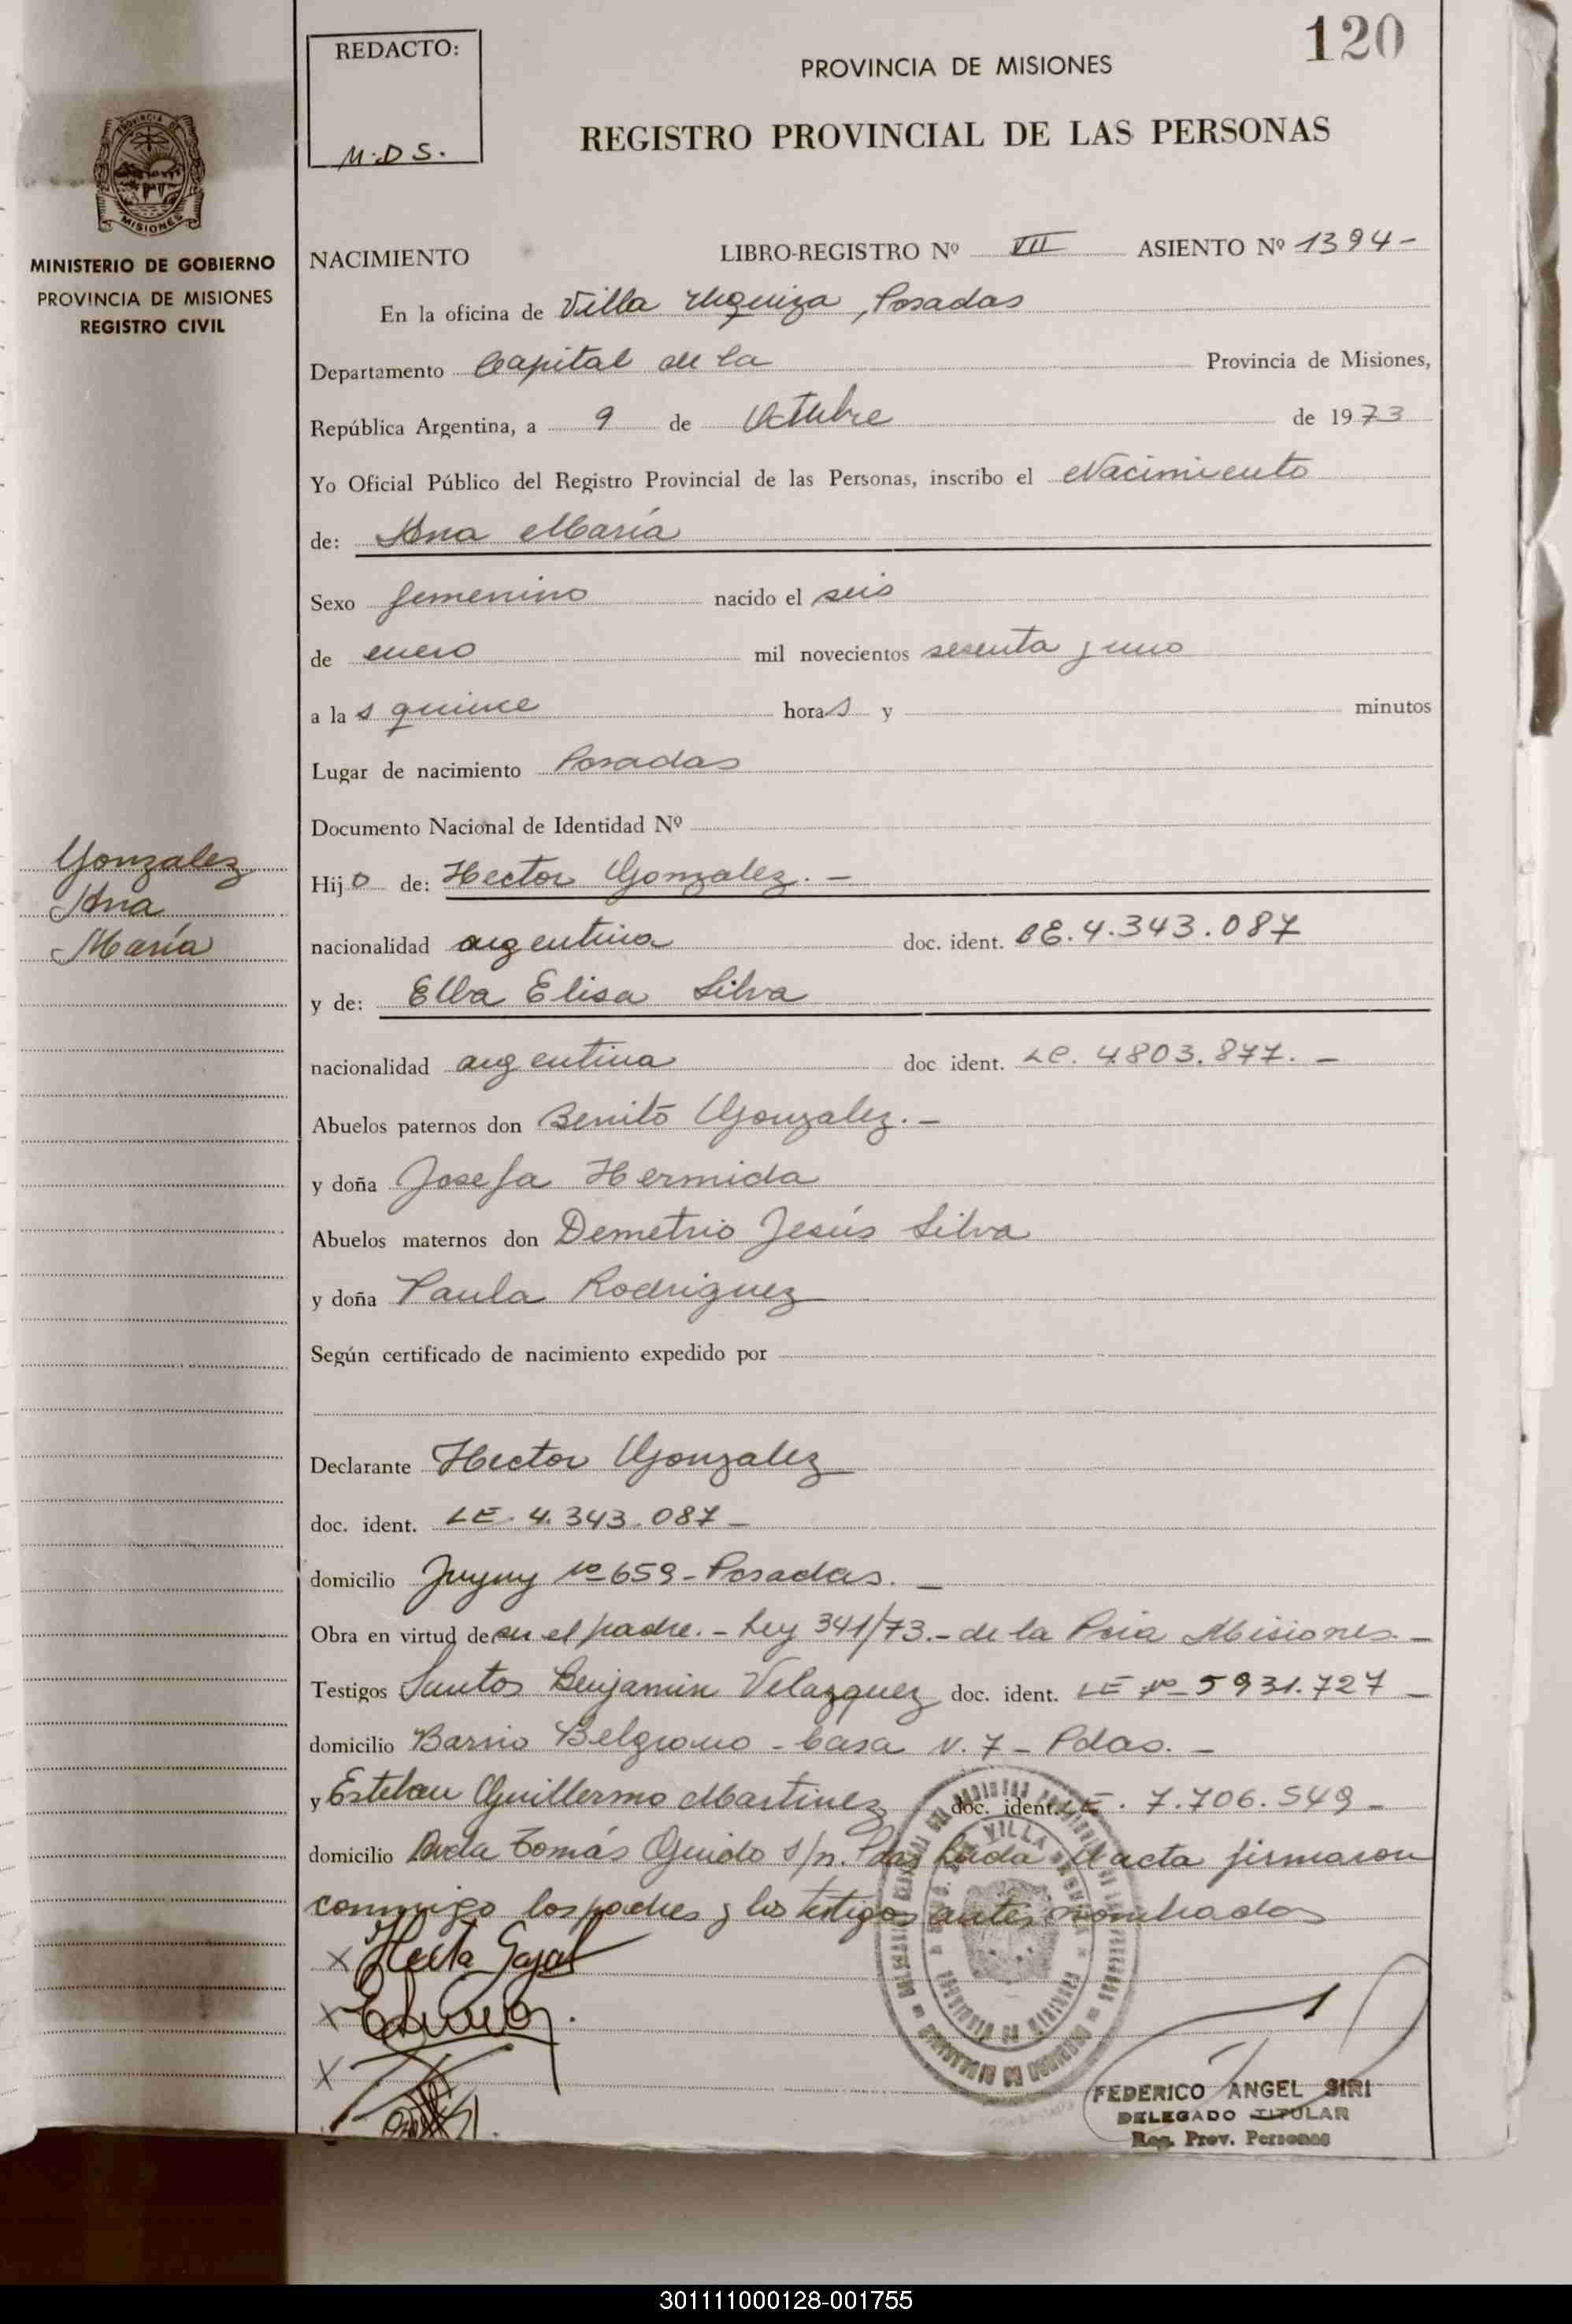 120
REDACTO:
M.D S.
PROVINCIA DE MISIONES
REGISTRO PROVINCIAL DE LAS PERSONAS
PROVINCIA DE
MISIONES
MINISTERIO DE GOBIERNO
PROVINCIA DE MISIONES
REGISTRO CIVIL
NACIMIENTO LIBRO-REGISTRO Nº VII ASIENTO Nº 1394-
En la oficina de Villa Urquiza, Posadas
Departamento Capital de la Provincia de Misiones,
República Argentina, a 9 de Octubre de 1973
Yo Oficial Público del Registro Provincial de las Personas, inscribo el Nacimiento
de: Ana María
Sexo femenino nacido el seis
de enero mil novecientos sesenta y uno
a las quince horas y minutos
Lugar de nacimiento Posadas
Documento Nacional de Identidad Nº
Gonzalez
Ana
María
Hijo de: Hector Gonzalez. -
nacionalidad argentina doc. ident. LE. 4.343.087
y de: Elba Elisa Silva
nacionalidad argentina doc ident. LC. 4803.877. -
Abuelos paternos don Benito Gonzalez. -
y doña Josefa Hermida
Abuelos maternos don Demetrio Jesús Silva
y doña Paula Rodriguez
Según certificado de nacimiento expedido por
Declarante Hector Gonzalez
doc. ident. LE. 4.343.087 -
domicilio Jujuy nº 659 - Posadas. -
Obra en virtud de ser el padre. - Ley 341/73. - de la Pcia Misiones. -
Testigos Santos Benjamin Velazquez doc. ident. LE nº 5931.727 -
domicilio Barrio Belgrano - Casa N. 7 - Pdas. -
y Esteban Guillermo Martinez doc. ident. LE. 7.706.549 -
domicilio Avda Tomás Guido s/n. Pdas Leida el acta firmaron
conmigo los padres y los testigos antes nombrados
X
X
X
FEDERICO ANGEL SIRI
DELEGADO TITULAR
Reg. Prov. Personas
301111000128-001755